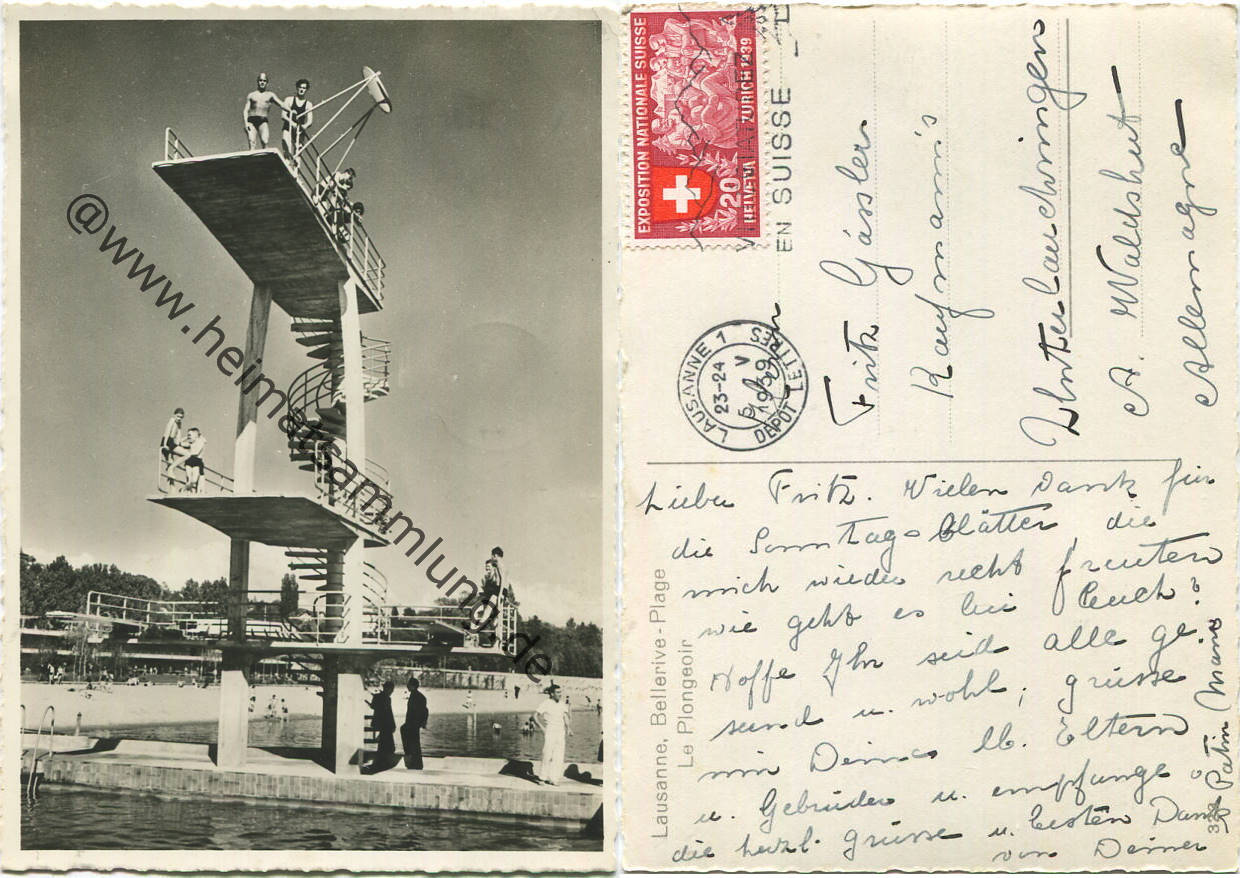 @www.heimatsammlung.de
EXPOSITION NATIONALE SUISSE
ZURICH 1939
HELVETIA
20
EN SUISSE
LAUSANNE 1
23-24
5 V
1939
DÉPÔT LETTRES
Fritz Gässler
Kaufmann's
Unterlauchringen
A. Waldshut
Allemagne
Lieber Fritz. Vielen Dank für
die Sonntagsblätter, die
mich wieder recht freuten
wie geht es bei Euch?
Hoffe Ihr seid alle ge-
sund u. wohl; grüsse
mir Deine lb. Eltern
u. Gebrüder u. empfange
die herzl. Grüsse u. besten Dank
von Deiner
Patin Marie
Lausanne, Bellerive-Plage
Le Plongeoir